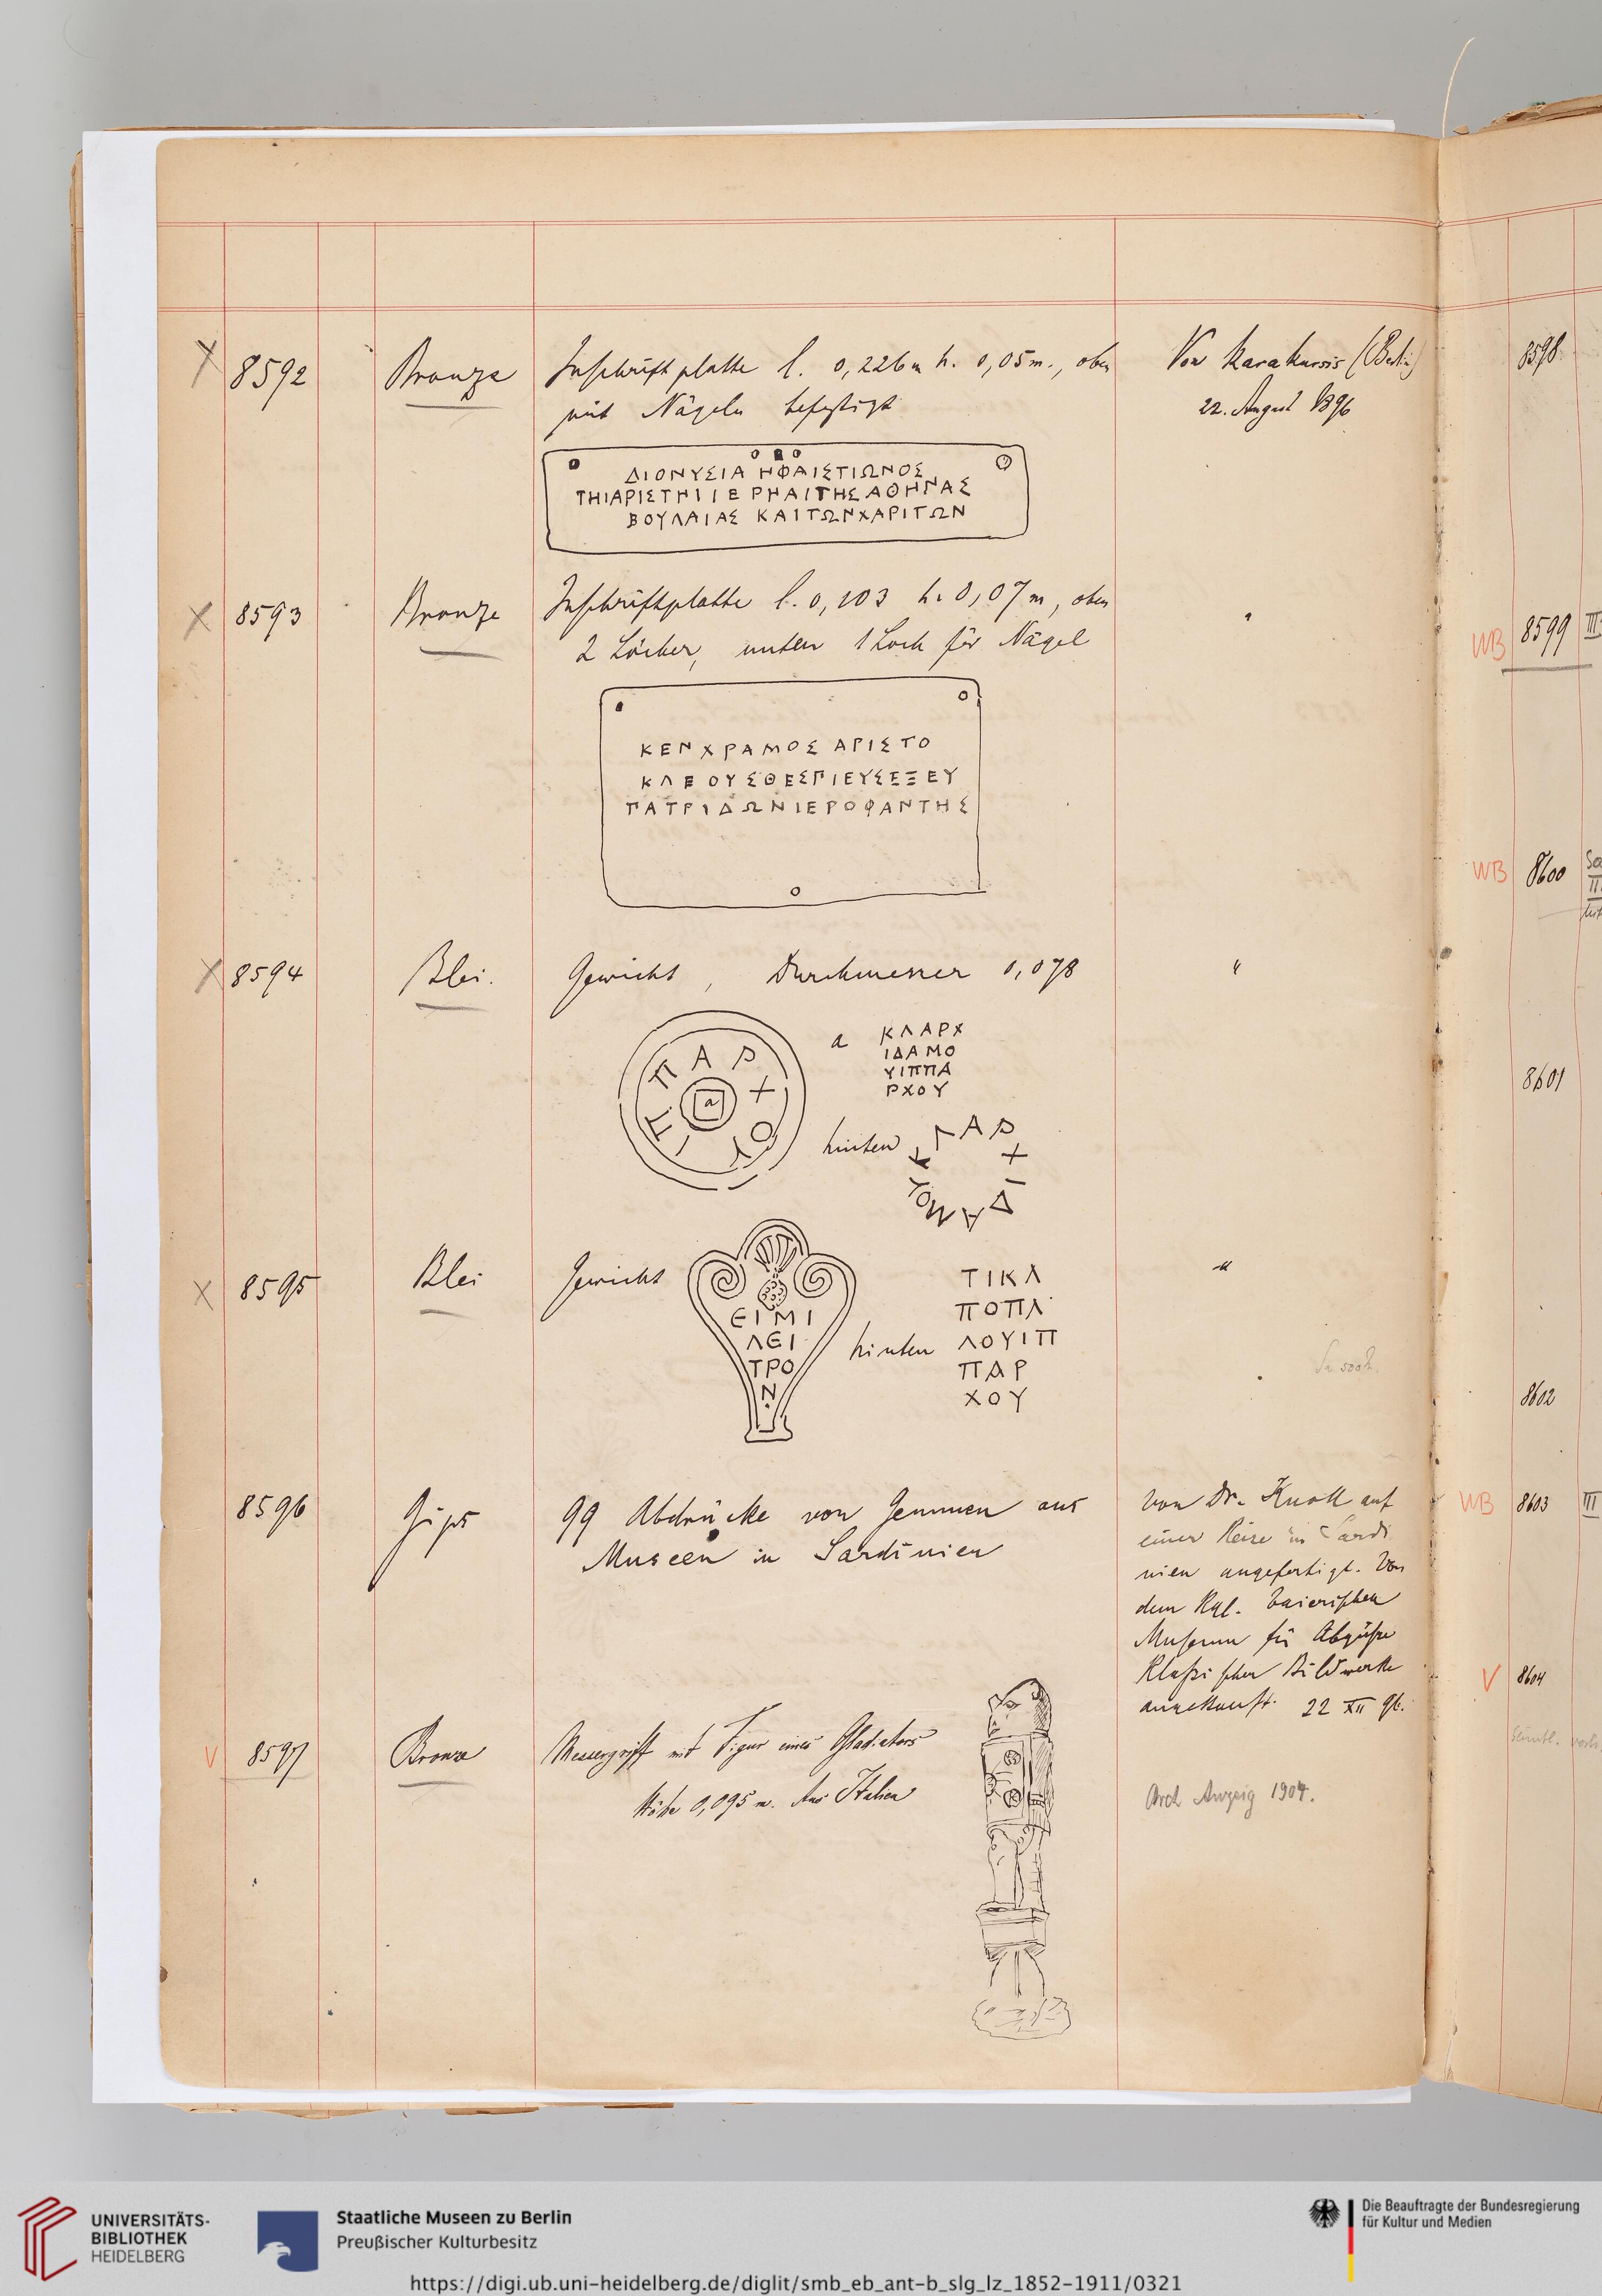 8592 Bronze Inschriftplatte l. 0,226m h. 0,05m., oben Von Karakursis (Berlin)
mit Nägeln befestigt 22. August 1896
ΔΙΟΝΥΣΙΑ ΗΦΑΙΣΤΙΩΝΟΣ
ΤΗΙΑΡΙΣΤΗΙΙΕΡΗΑΙΤΗΣΑΘΗΝΑΣ
ΒΟΥΛΑΙΑΣ ΚΑΙΤΩΝΧΑΡΙΤΩΝ
X 8593 Bronze Inschriftplatte l. 0,103 h. 0,07m, oben "
2 Löcher, unten 1 Loch für Nägel
ΚΕΝΧΡΑΜΟΣ ΑΡΙΣΤΟ
ΚΛΕΟΥΣΘΕΣΠΙΕΥΣΕΞΕΥ
ΠΑΤΡΙΔΩΝΙΕΡΟΦΑΝΤΗΣ
X 8594 Blei. Gewicht, Durchmesser 0,078 "
ΙΠΠΑΡΧΟΥ
a
a ΚΛΑΡΧ
ΙΔΑΜΟ
ΥΙΠΠΑ
ΡΧΟΥ
hinten ΚΛΑΡΧΙΔΑΜΟΥ
X 8595 Blei Gewicht "
ΕΙΜΙ
ΛΕΙ
ΤΡΟ
Ν
hinten ΤΙΚΛ
ΠΟΠΛ
ΛΟΥΙΠ
ΠΑΡ
ΧΟΥ
8596 Gips 99 Abdrücke von Gemmen aus
Museen in Sardinien
von Dr. Knoll auf
einer Reise in Sardi
nien angefertigt. Von
dem Kgl. baierischen
Museum für Abgüsse
klassischer Bildwerke
angekauft. 22 XII 96.
V 8597 Bronze Messergriff mit Figur eines Gladiators
Höhe 0,095 m. Aus Italien
Arch Anzeig 1904.
8598
WB 8599 III
WB 8600
8601
8602
WB 8603 III
V 8604
UNIVERSITÄTS-
BIBLIOTHEK
HEIDELBERG
Staatliche Museen zu Berlin
Preußischer Kulturbesitz
Die Beauftragte der Bundesregierung
für Kultur und Medien
https://digi.ub.uni-heidelberg.de/diglit/smb_eb_ant-b_slg_lz_1852-1911/0321